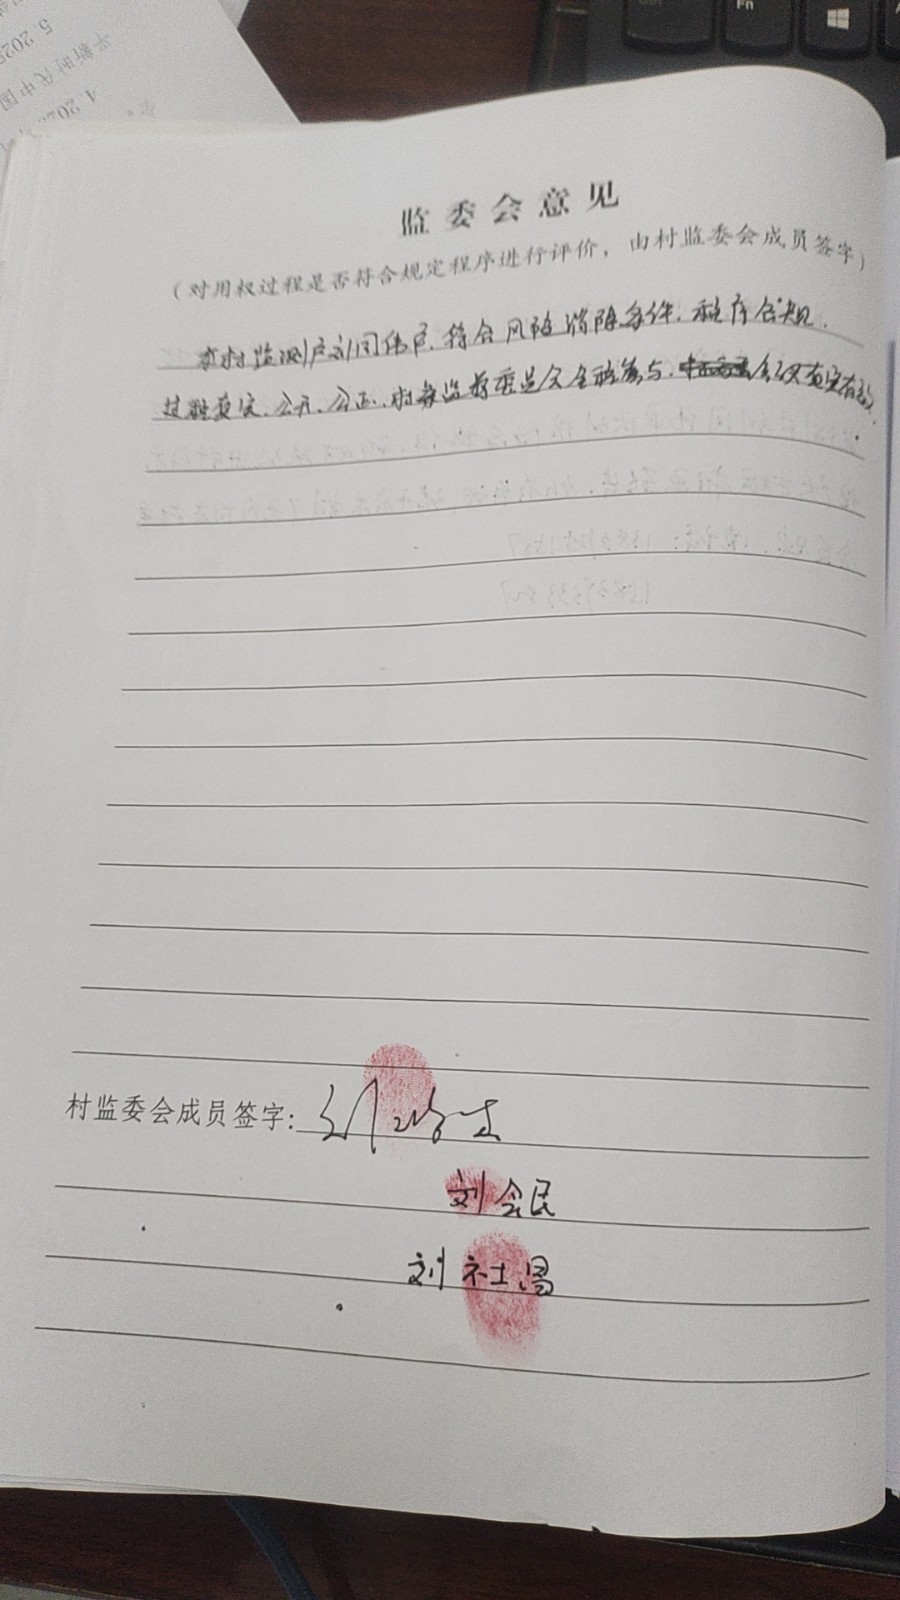 监委会意见
（对用权过程是否符合规定程序进行评价，由村监委会成员签字）
本村监测户刘同伟户，符合风险消除条件，程序合规，
过程真实、公开、公正，村务监督委员会全程参与，会议真实有效。
村监委会成员签字：刘
刘会民
刘社昌
Fn
5. 202
平新时代中国
4. 202